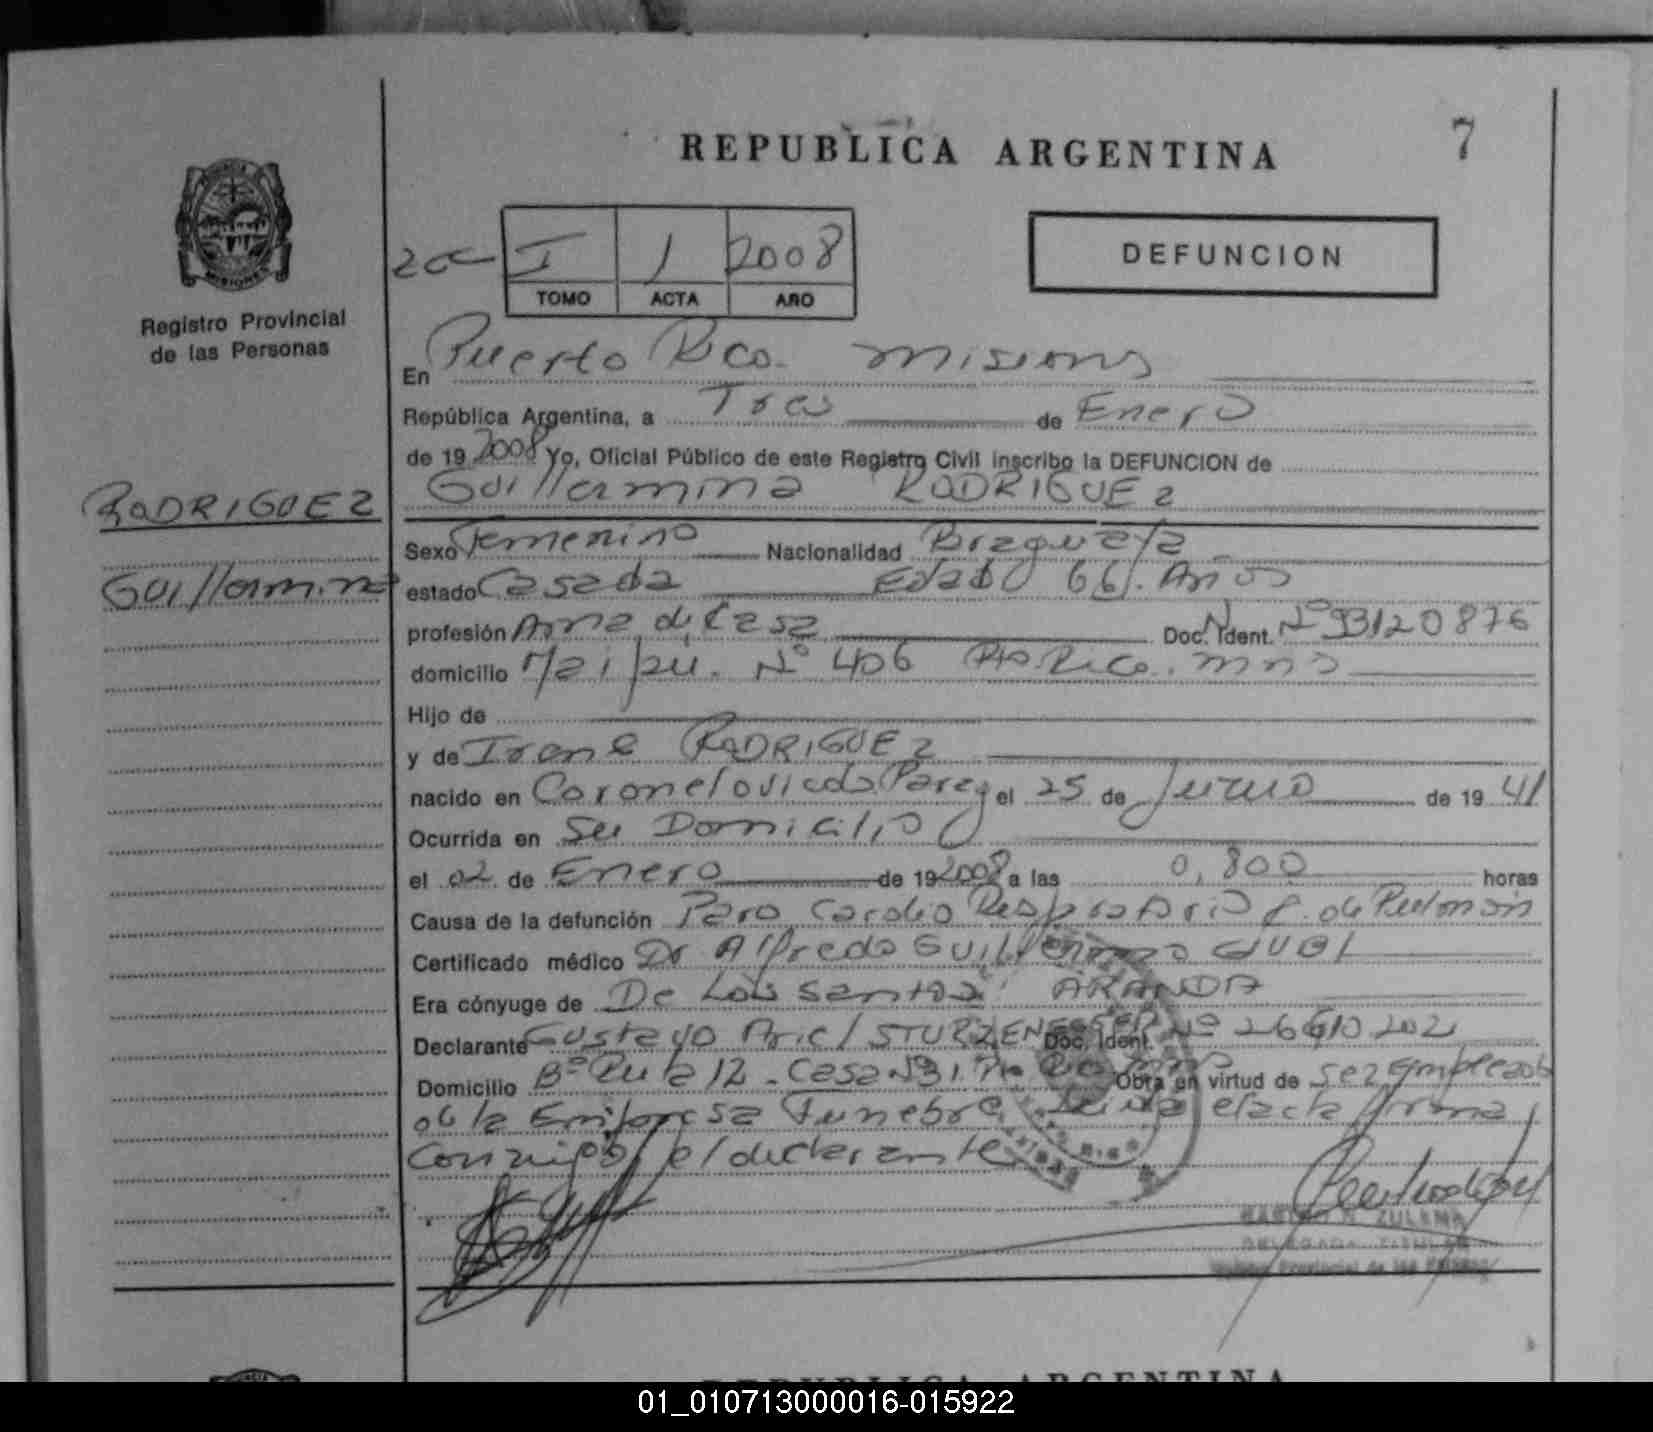 REPUBLICA ARGENTINA
7
I 1 2008
TOMO ACTA AÑO
DEFUNCION
Registro Provincial
de las Personas
En Puerto Rico. Misiones
República Argentina, a Tres de Enero
de 19 2008 Yo, Oficial Público de este Registro Civil inscribo la DEFUNCION de
Guillermina RODRIGUEZ
RODRIGUEZ
Guillermina
Sexo Femenino Nacionalidad
estado Casada Edad 66. Años
profesión Ama de Casa Doc. Ident. Nº 93120876
domicilio Maipu. Nº 406 Pto Rico. mns
Hijo de
y de Irene RODRIGUEZ
nacido en Coronel Oviedo Parag el 25 de de 19 41
Ocurrida en Su Domicilio
el 02 de Enero de 19 2008 a las 0,800 horas
Causa de la defunción Paro Cardio Respiratorio de Pulmón
Certificado médico Dr Alfredo Guillermo
Era cónyuge de De Los Santos ARANDA
Declarante Gustavo Ariel STURZENEGGER Doc. Ident. Nº
Domicilio Bº Ruta 12 - Casa Nº 31 Pto Rico mns Obra en virtud de ser empleado
de la Empresa Funebre. el acta firma
conmigo el declarante
ZULEMA
DELEGADA TITULAR
Registro Provincial de las Personas
REPUBLICA ARGENTINA
01_010713000016-015922